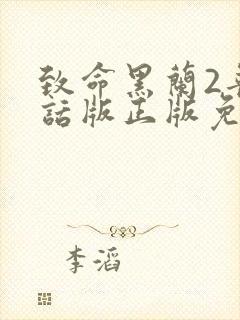 致命黑蘭2
話版正版免
李滔